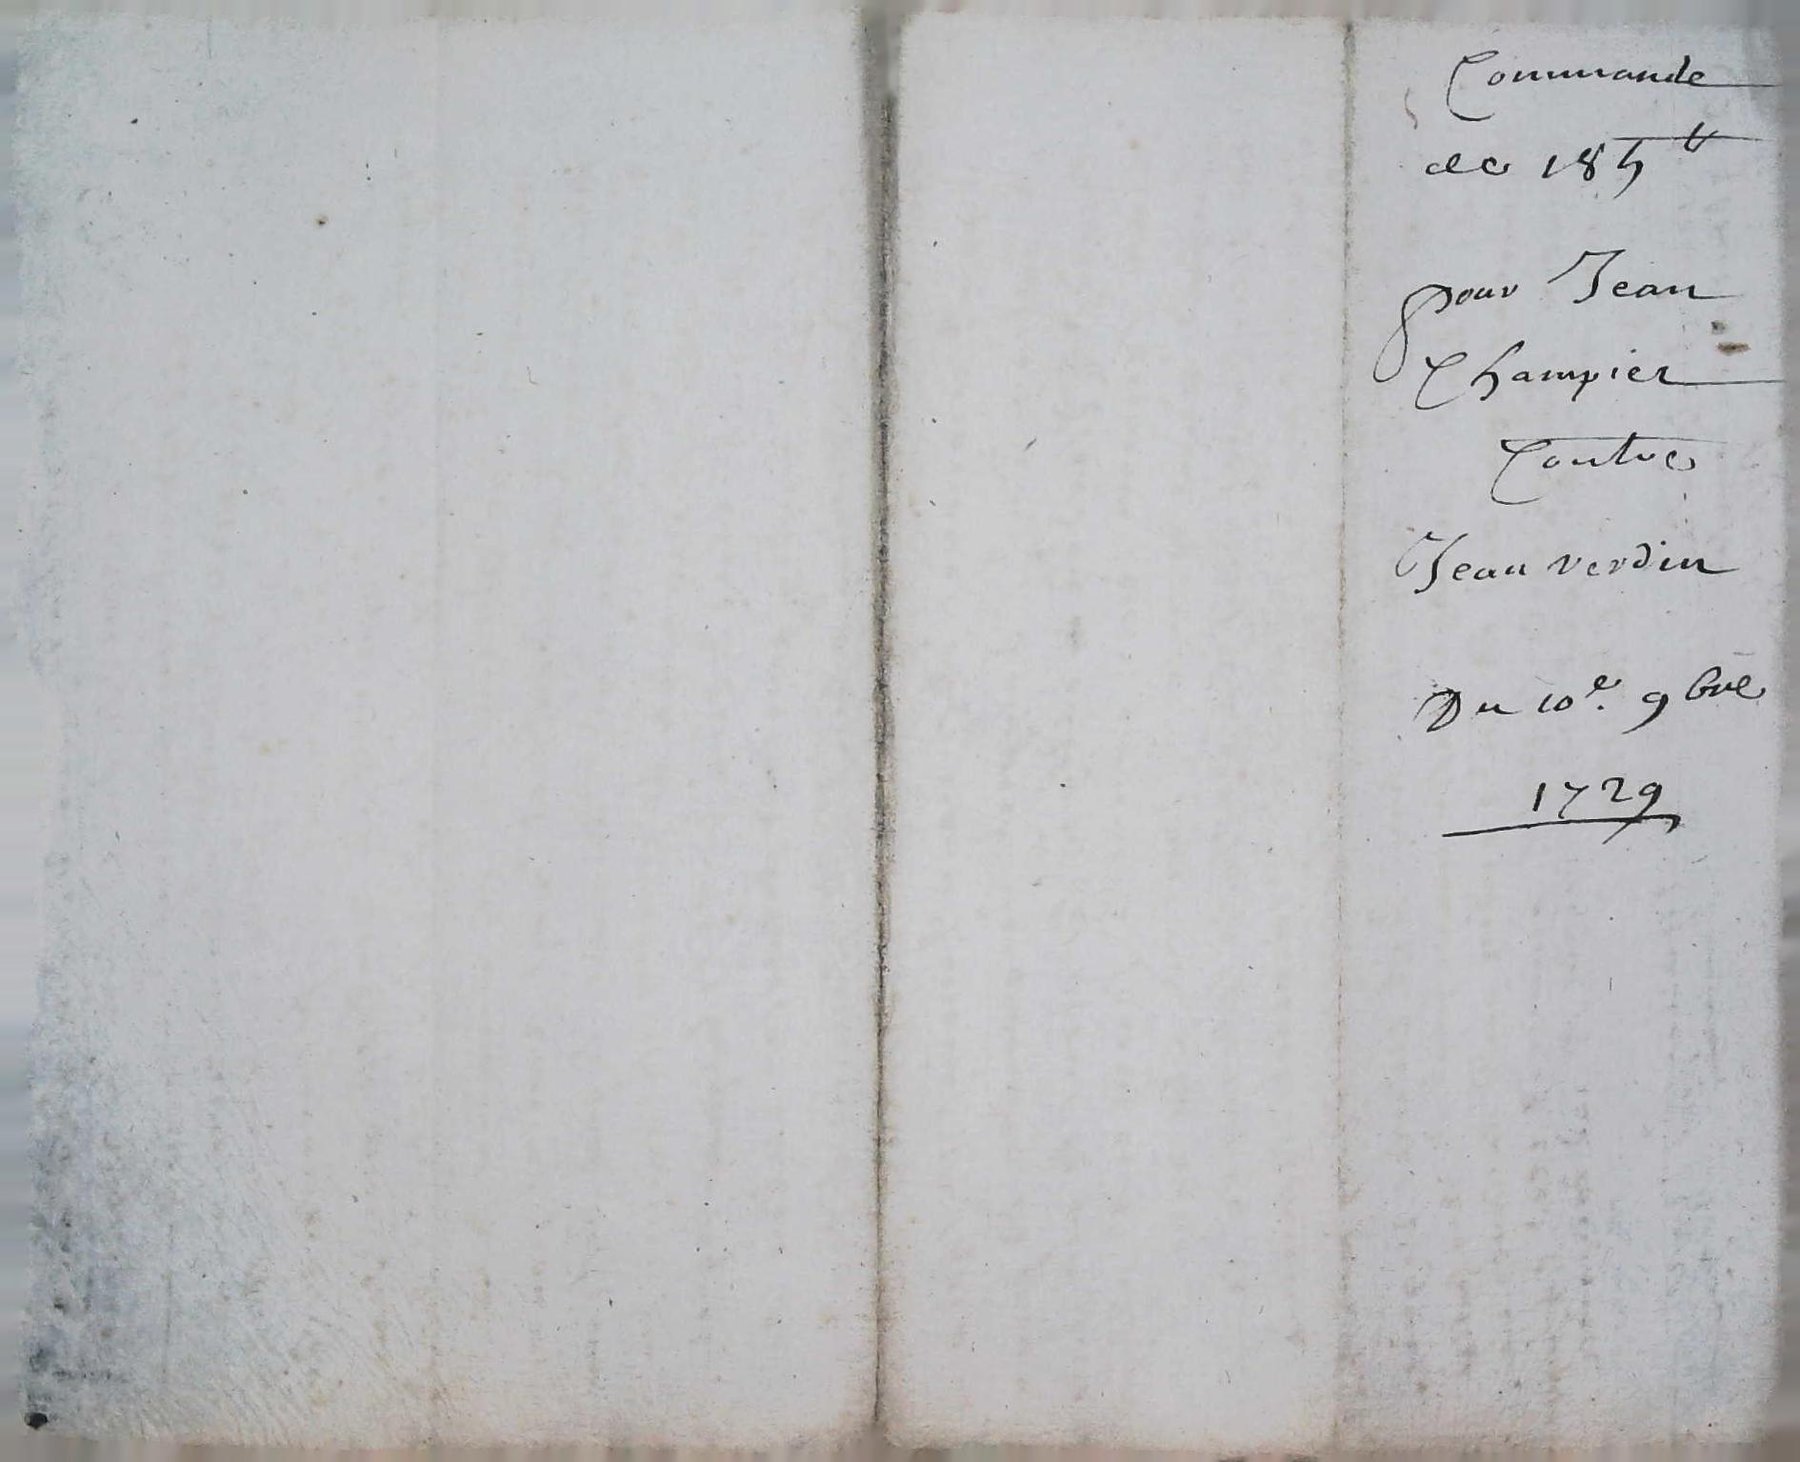 Commande
de 185ᵗᵗ
pour Jean
Champier
Contre
Jean verdin
Du 10ᵉ. 9bre
1729